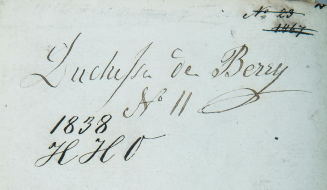 No 23
1867
Duchesse de Berry
No 11
1838
H H O